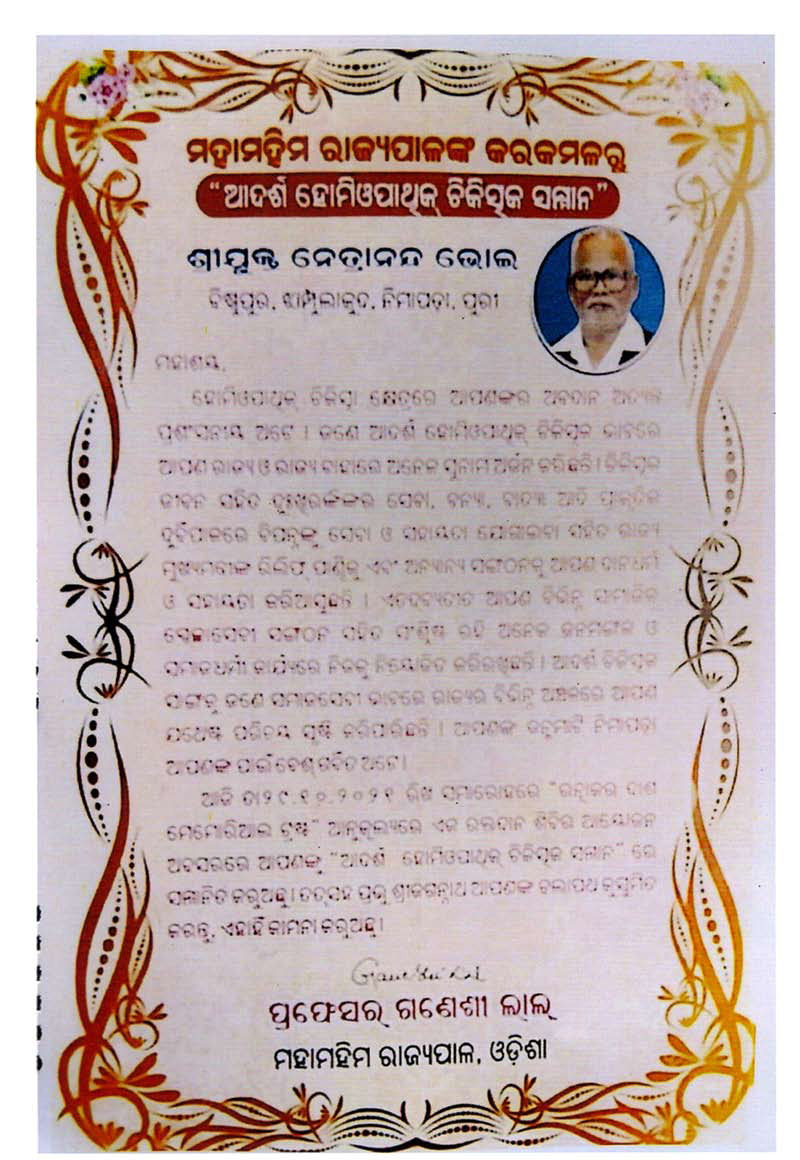 ମହାମହିମ ରାଜ୍ୟପାଳଙ୍କ କରକମଳରୁ
“ଆଦର୍ଶ ହୋମିଓପାଥିକ୍ ଚିକିତ୍ସକ ସମ୍ମାନ”
ଶ୍ରୀଯୁକ୍ତ ନେତ୍ରାନନ୍ଦ ଭୋଇ
ବିଷ୍ଣୁପୁର, ଝାମ୍ପୁଲାକୁଦ, ନିମାପଡ଼ା, ପୁରୀ
ମହାଶୟ,
ହୋମିଓପାଥିକ୍ ଚିକିତ୍ସା କ୍ଷେତ୍ରରେ ଆପଣଙ୍କର ଅବଦାନ ଅତ୍ୟନ୍ତ
ପ୍ରଶଂସନୀୟ ଅଟେ । ଜଣେ ଆଦର୍ଶ ହୋମିଓପାଥିକ୍ ଚିକିତ୍ସକ ଭାବରେ
ଆପଣ ରାଜ୍ୟ ଓ ରାଜ୍ୟ ବାହାରେ ଅନେକ ସୁନାମ ଅର୍ଜନ କରିଛନ୍ତି । ଚିକିତ୍ସକ
ଜୀବନ ସହିତ ଦୁଃଖିରଙ୍କିଙ୍କର ସେବା, ବନ୍ୟା, ବାତ୍ୟା ଆଦି ପ୍ରାକୃତିକ
ଦୁର୍ବିପାକରେ ବିପନ୍ନଙ୍କୁ ସେବା ଓ ସହାୟତା ଯୋଗାଇବା ସହିତ ରାଜ୍ୟ
ମୁଖ୍ୟମନ୍ତ୍ରୀଙ୍କ ରିଲିଫ୍ ପାଣ୍ଠିକୁ ଏବଂ ଅନ୍ୟାନ୍ୟ ସଙ୍ଗଠନକୁ ଆପଣ ଦାନଧର୍ମ
ଓ ସହାୟତା କରିଆସୁଛନ୍ତି । ଏତଦ୍‌ବ୍ୟତୀତ ଆପଣ ବିଭିନ୍ନ ସାମାଜିକ
ସ୍ଵେଚ୍ଛାସେବୀ ସଙ୍ଗଠନ ସହିତ ସଂଶ୍ଳିଷ୍ଟ ରହି ଅନେକ ଜନମଙ୍ଗଳ ଓ
ସମାଜଧର୍ମୀ କାର୍ଯ୍ୟରେ ନିଜକୁ ନିୟୋଜିତ କରିରଖିଛନ୍ତି । ଆଦର୍ଶ ଚିକିତ୍ସକ
ସାଙ୍ଗକୁ ଜଣେ ସମାଜସେବୀ ଭାବରେ ରାଜ୍ୟର ବିଭିନ୍ନ ଅଞ୍ଚଳରେ ଆପଣ
ଯଥେଷ୍ଟ ପରିଚୟ ସୃଷ୍ଟି କରିପାରିଛନ୍ତି । ଆପଣଙ୍କ ଜନ୍ମମାଟି ନିମାପଡ଼ା
ଆପଣଙ୍କ ପାଇଁ ବେଶ୍ ଗର୍ବିତ ଅଟେ ।
ଆଜି ତା୨୯.୧୦.୨୦୨୧ ରିଖ ସମାରୋହରେ “ରତ୍ନାକର ଦାଶ
ମେମୋରିଆଲ ଟ୍ରଷ୍ଟ” ଆନୁକୂଲ୍ୟରେ ଏକ ରକ୍ତଦାନ ଶିବିର ଆୟୋଜନ
ଅବସରରେ ଆପଣଙ୍କୁ “ଆଦର୍ଶ ହୋମିଓପାଥିକ୍ ଚିକିତ୍ସକ ସମ୍ମାନ” ରେ
ସମ୍ମାନିତ କରୁଅଛୁ । ତତ୍‌ସହ ପ୍ରଭୁ ଶ୍ରୀଜଗନ୍ନାଥ ଆପଣଙ୍କ ଚଲାପଥ କୁସୁମିତ
କରନ୍ତୁ, ଏହାହିଁ କାମନା କରୁଅଛୁ ।
ପ୍ରଫେସର୍ ଗଣେଶୀ ଲାଲ୍
ମହାମହିମ ରାଜ୍ୟପାଳ, ଓଡ଼ିଶା